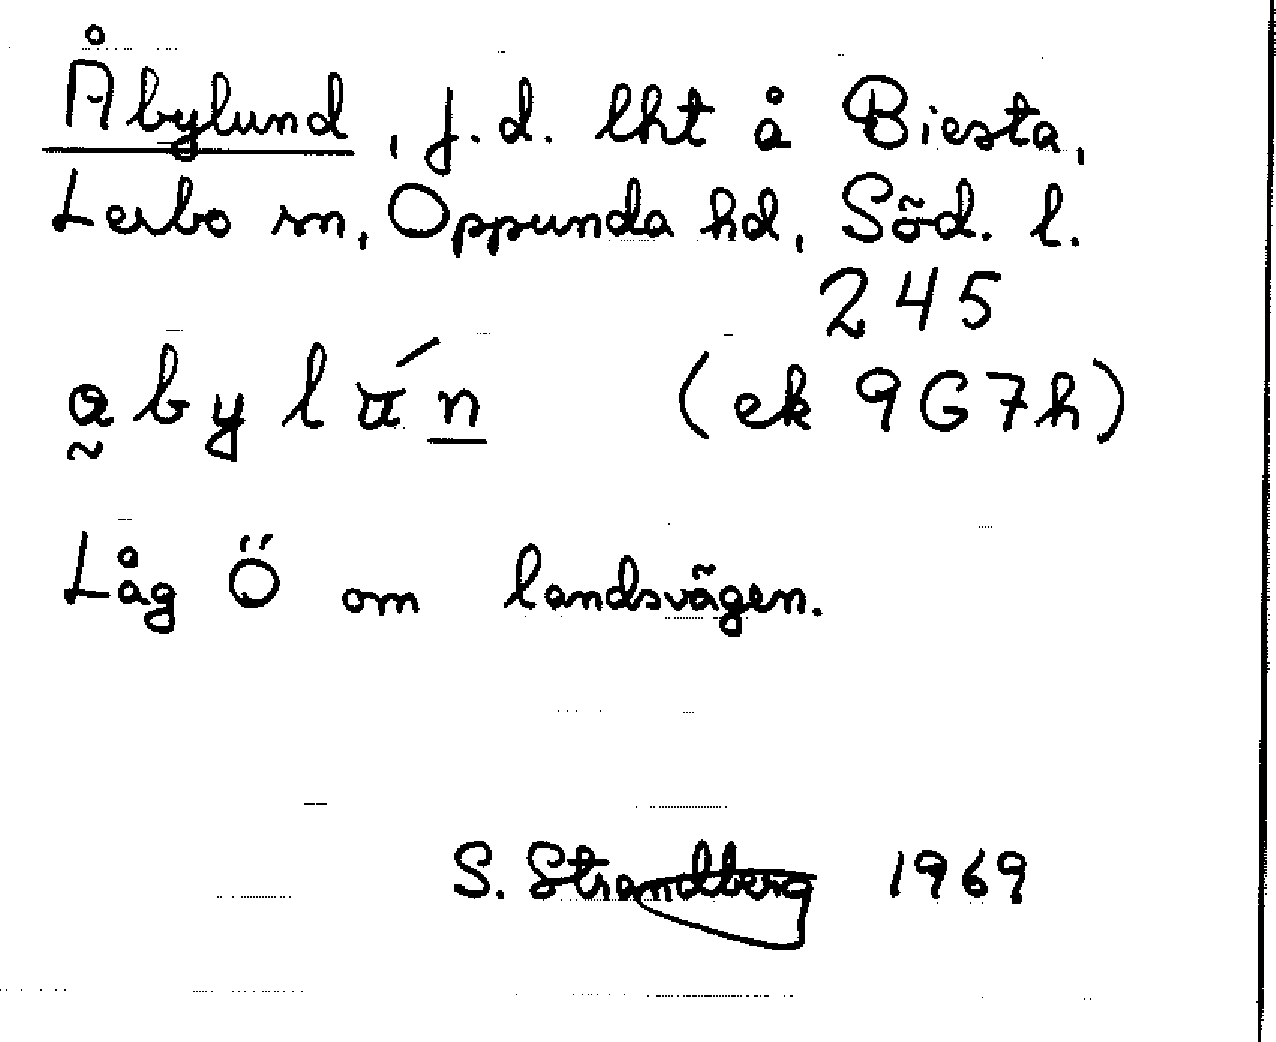 Åbylund, f.d. lht å Biesta,
Lerbo sn, Oppunda hd, Söd. l.
245
(ek 9G7h)
Låg Ö om landsvägen.
S. Strandberg 1969